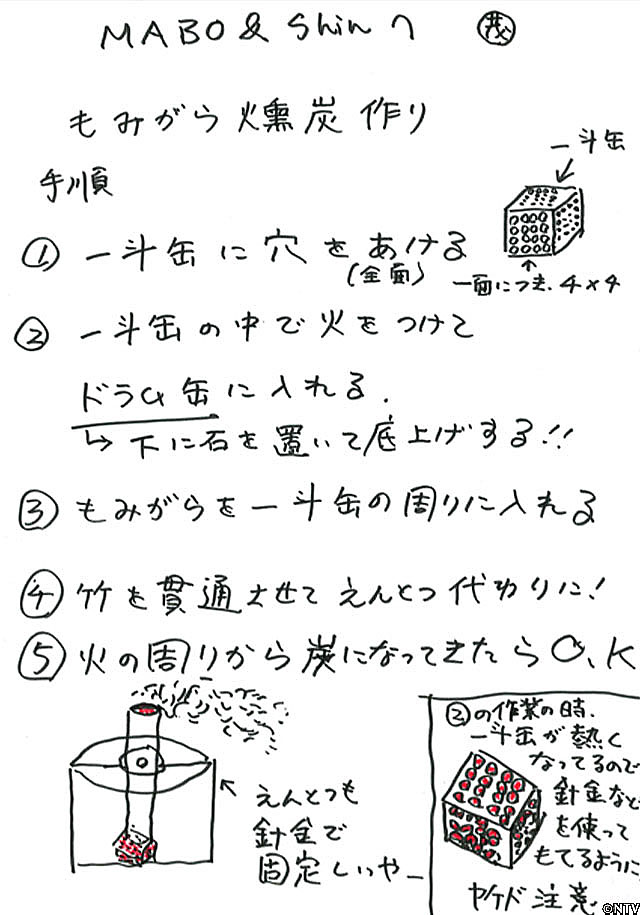 MABO & Shin へ
茂
もみがら燻炭作り
手順
一斗缶
① 一斗缶に穴をあける
(全面)
一面につき、4×4
② 一斗缶の中で火をつけて
ドラム缶に入れる.
↳ 下に石を置いて底上げする!!
③ もみがらを一斗缶の周りに入れる
④ 竹を貫通させてえんとつ代わりに!
⑤ 火の周りから炭になってきたらO.K
えんとつも
針金で
固定しいや_
②の作業の時、
一斗缶が熱く
なってるので
針金など
を使って
もてるように
ヤケド注意
©NTV